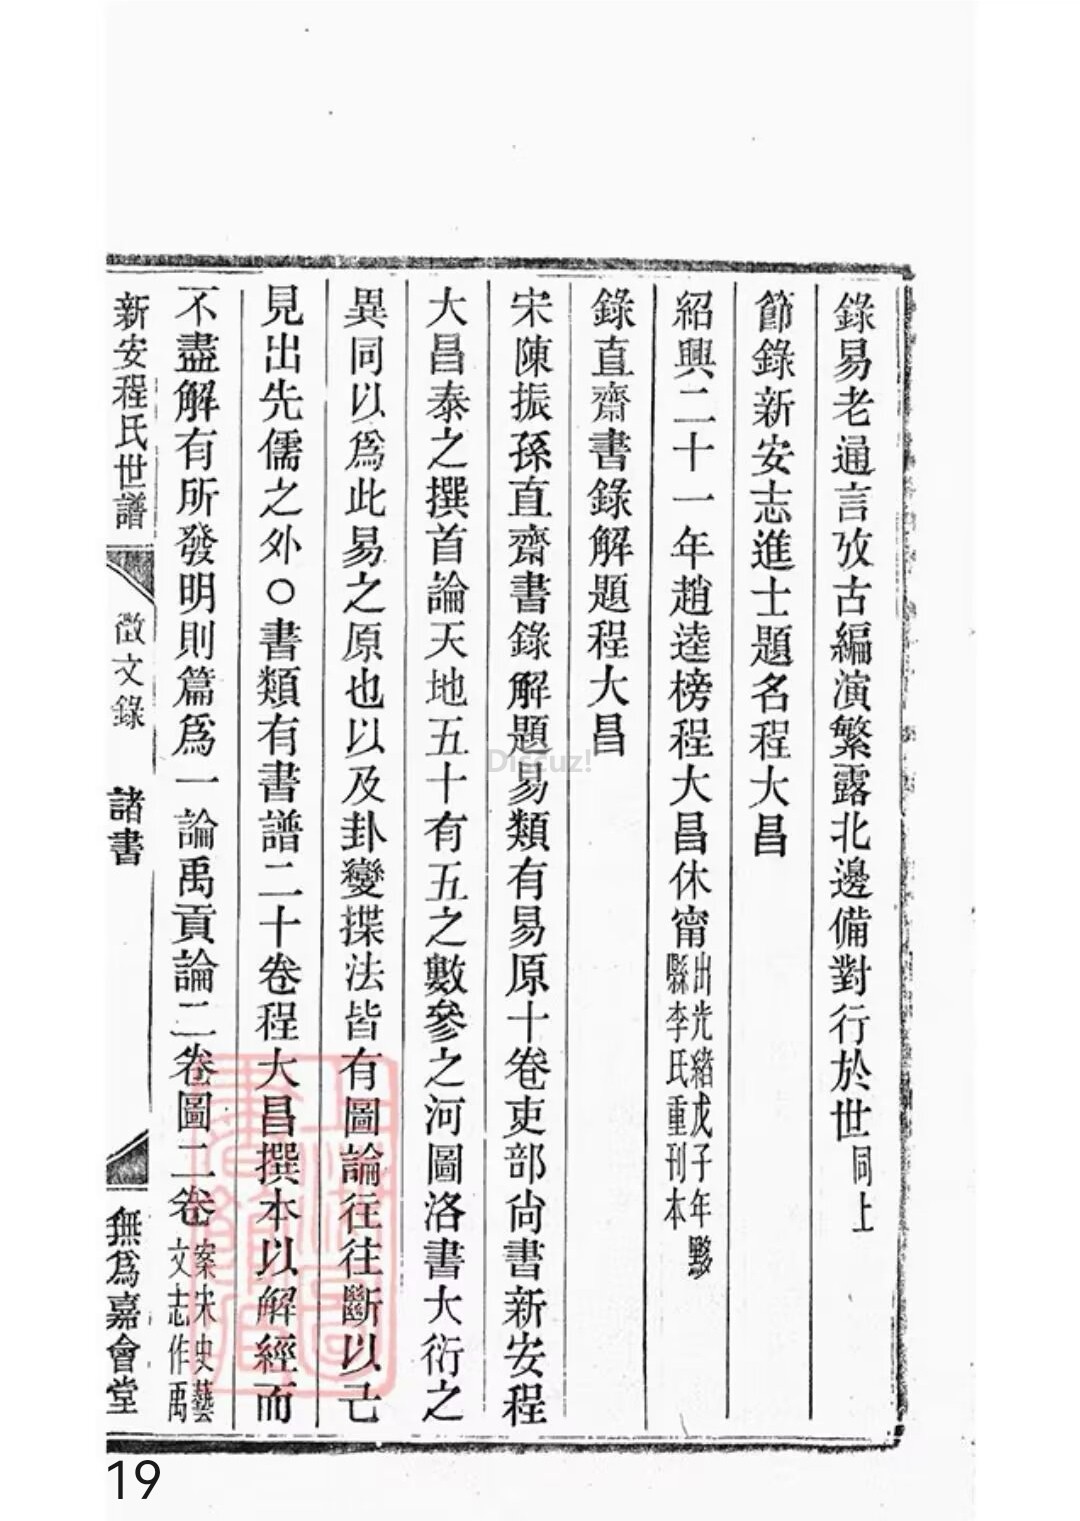 錄易老通言攷古編演繁露北邊備對行於世同上
節錄新安志進士題名程大昌
紹興二十一年趙逵榜程大昌休甯出光緒戊子年黟縣李氏重刊本
錄直齋書錄解題程大昌
宋陳振孫直齋書錄解題易類有易原十卷吏部尙書新安程
大昌泰之撰首論天地五十有五之數參之河圖洛書大衍之
異同以爲此易之原也以及卦變揲法皆有圖論往往斷以己
見出先儒之外○書類有書譜二十卷程大昌撰本以解經而
不盡解有所發明則篇爲一論禹貢論二卷圖二卷案宋史藝文志作禹
新安程氏世譜 徵文錄 諸書 無爲嘉會堂
Discuz!
19